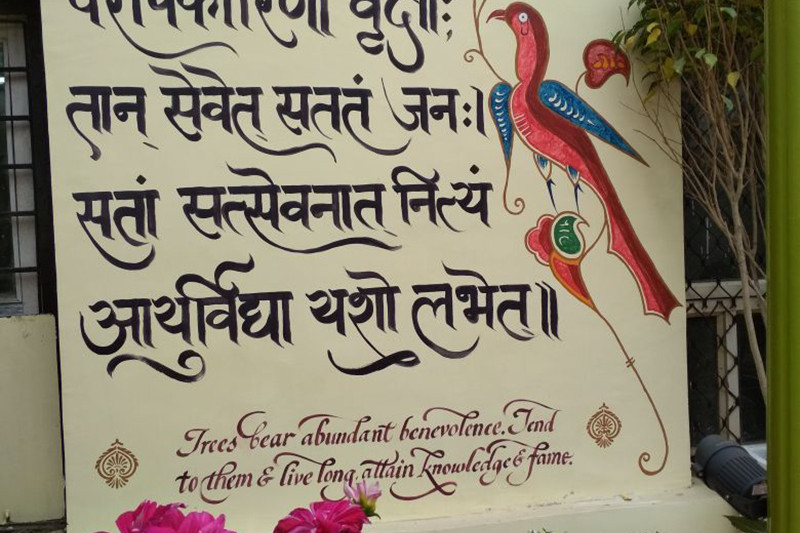 परोपकारिणो वृक्षाः,
तान् सेवेत् सततं जनः।
सतां सत्सेवनात् नित्यं
आयुर्विद्या यशो लभेत्॥
Trees bear abundant benevolence. Tend
to them & live long, attain knowledge & fame.